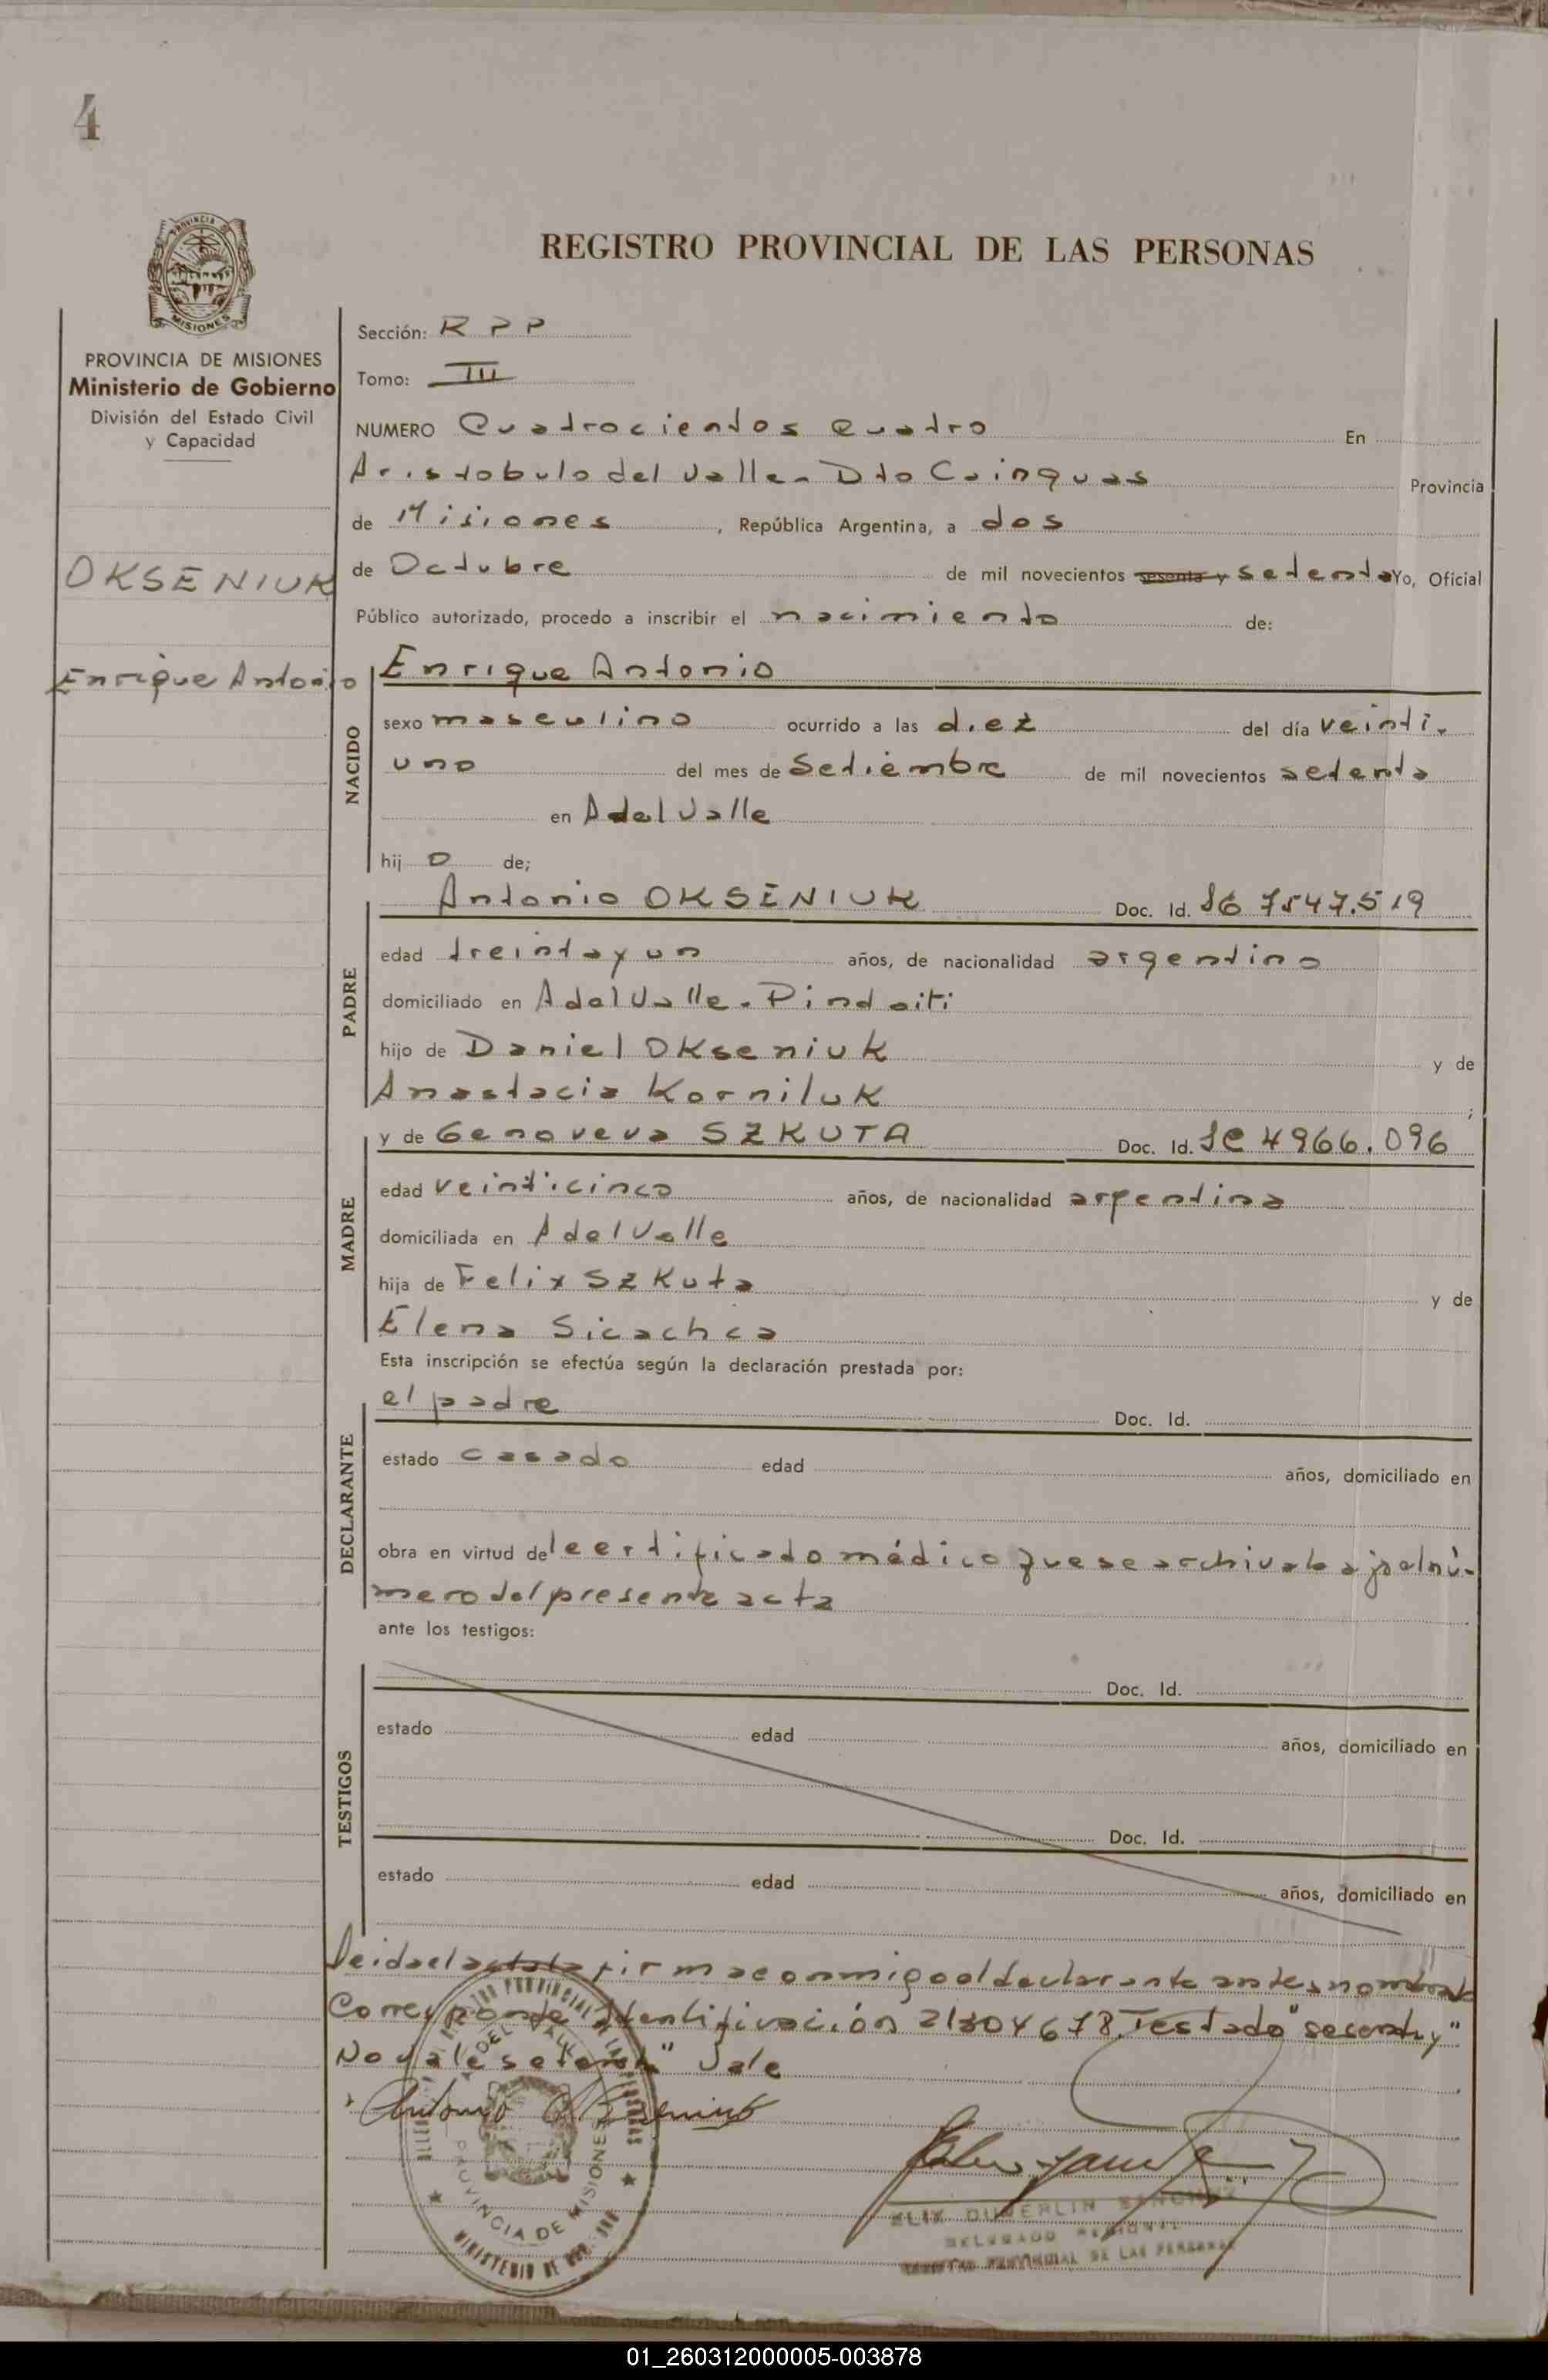 4
REGISTRO PROVINCIAL DE LAS PERSONAS
PROVINCIA
MISIONES
PROVINCIA DE MISIONES
Ministerio de Gobierno
División del Estado Civil
y Capacidad
OKSENIUK
Enrique Antonio
Sección: R P P
Tomo: III
NUMERO Cuatrocientos Cuatro En
Aristobulo del Valle - Dto Cainguas Provincia
de Misiones, República Argentina, a dos
de Octubre de mil novecientos sesenta y setenta Yo, Oficial
Público autorizado, procedo a inscribir el nacimiento de:
NACIDO
Enrique Antonio
sexo masculino ocurrido a las diez del día veinti-
uno del mes de Setiembre de mil novecientos setenta
en A del Valle
hij o de;
PADRE
Antonio OKSENIUK Doc. Id. 7547.519
edad treinta y un años, de nacionalidad argentino
domiciliado en A del Valle - Pindaiti
hijo de Daniel OKseniuk y de
Anastacia Korniluk ;
MADRE
y de Genoveva SZKUTA Doc. Id. 4966.096
edad veinticinco años, de nacionalidad argentina
domiciliada en A del Valle
hija de Felix SZKuta y de
Elena Sicachca
Esta inscripción se efectúa según la declaración prestada por:
DECLARANTE
el padre Doc. Id.
estado casado edad años, domiciliado en
obra en virtud del certificado médico que se archiva bajo el nú-
mero del presente acta
ante los testigos:
TESTIGOS
Doc. Id.
estado edad años, domiciliado en
Doc. Id.
estado edad años, domiciliado en
Leida el acta la firma conmigo el declarante antes nombrado
Corresponde Identificación 21304678. Testado "sesenta y"
No vale setenta" Vale
PROVINCIA DE MISIONES
MINISTERIO DE
SANCHEZ
DELEGADO REGIONAL
REGISTRO PROVINCIAL DE LAS PERSONAS
01_260312000005-003878